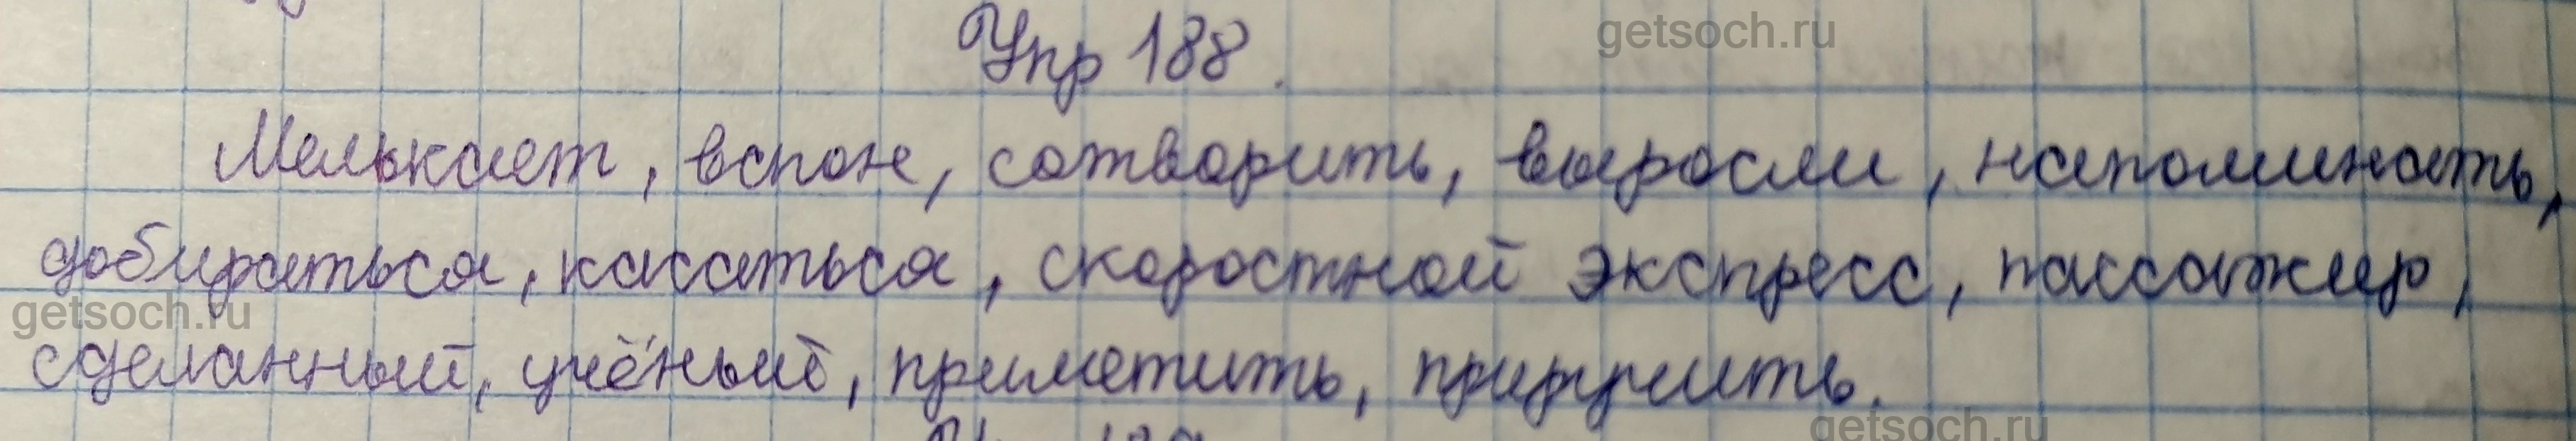 Упр 188.
getsoch.ru
Мелькает, вспон, сотворить, выросли, напоминать,
добираться, касаться, скоростной экспресс, пассажир,
getsoch.ru
сделанный, учёный, приметить, приручить.
getsoch.ru